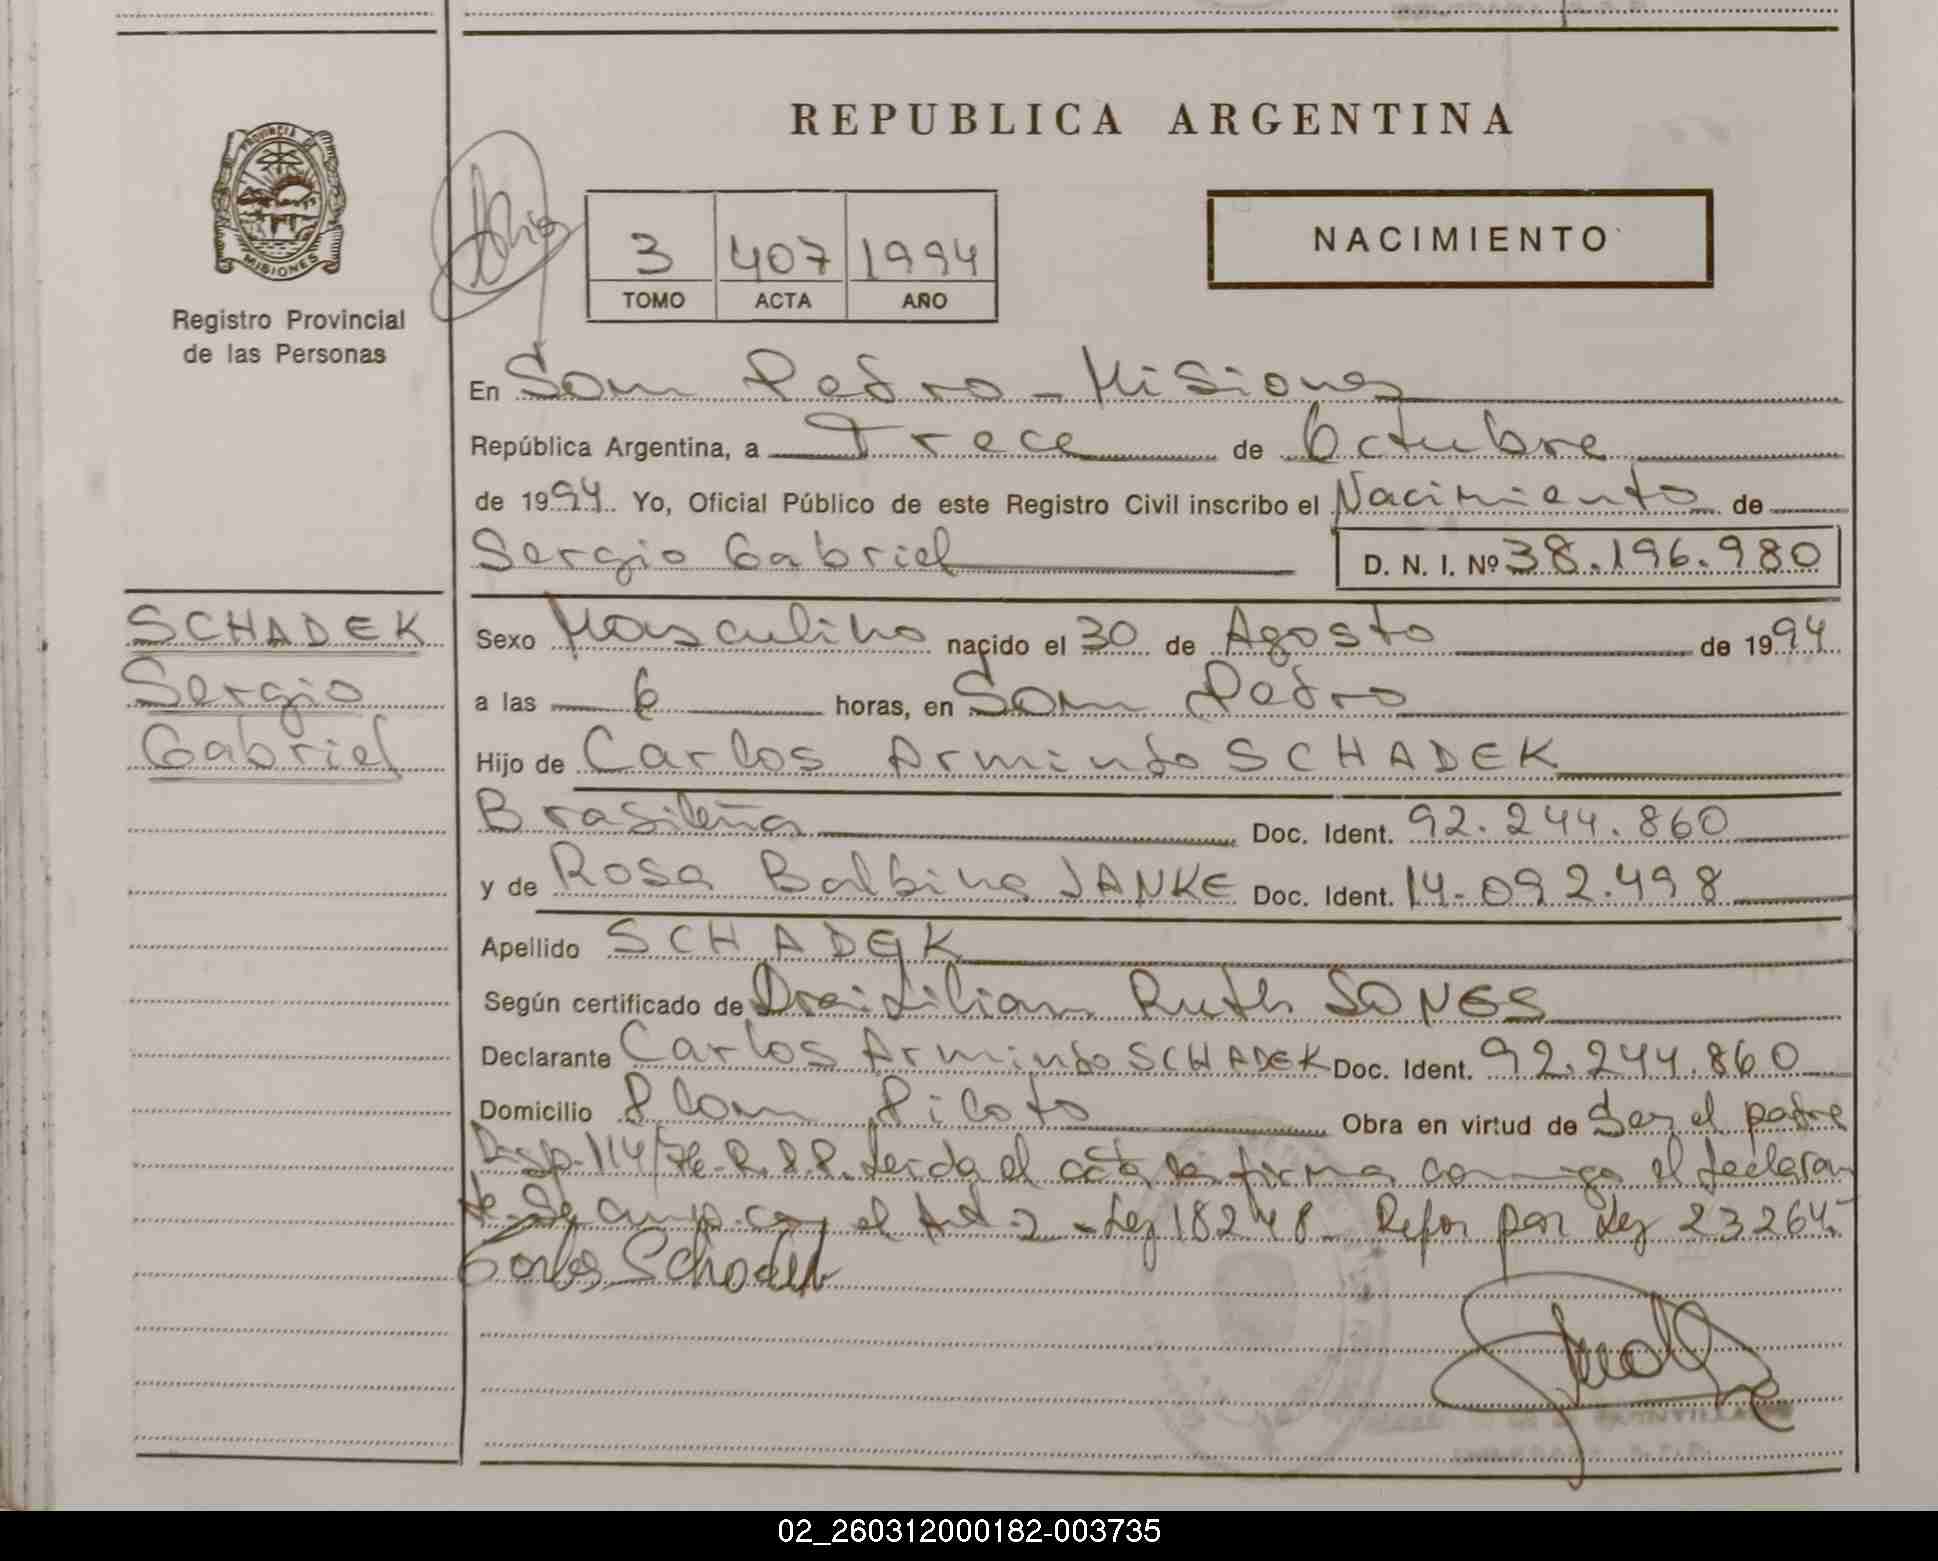 REPUBLICA ARGENTINA
PROVINCIA DE
MISIONES
Registro Provincial
de las Personas
3 407 1994
TOMO ACTA AÑO
NACIMIENTO
En San Pedro - Misiones
República Argentina, a Trece de Octubre
de 1994. Yo, Oficial Público de este Registro Civil inscribo el Nacimiento de
Sergio Gabriel D. N. I. Nº 38.196.980
SCHADEK
Sergio
Gabriel
Sexo Masculino nacido el 30 de Agosto de 1994
a las 6 horas, en San Pedro
Hijo de Carlos Armindo SCHADEK
Brasileña Doc. Ident. 92.244.860
y de Rosa Balbina JANKE Doc. Ident. 14.092.498
Apellido SCHADEK
Según certificado de Ruth SONES
Declarante Carlos Armindo SCHADEK Doc. Ident. 92.244.860
Domicilio Plan Piloto Obra en virtud de Ser el padre
Disp. 114/76-R.P.P. Leida el acta la firma conmigo el declaran
te. Se cump. con el Art. 2 - Ley 18248 - Refor por Ley 23264.
Carlos Schadek
02_260312000182-003735